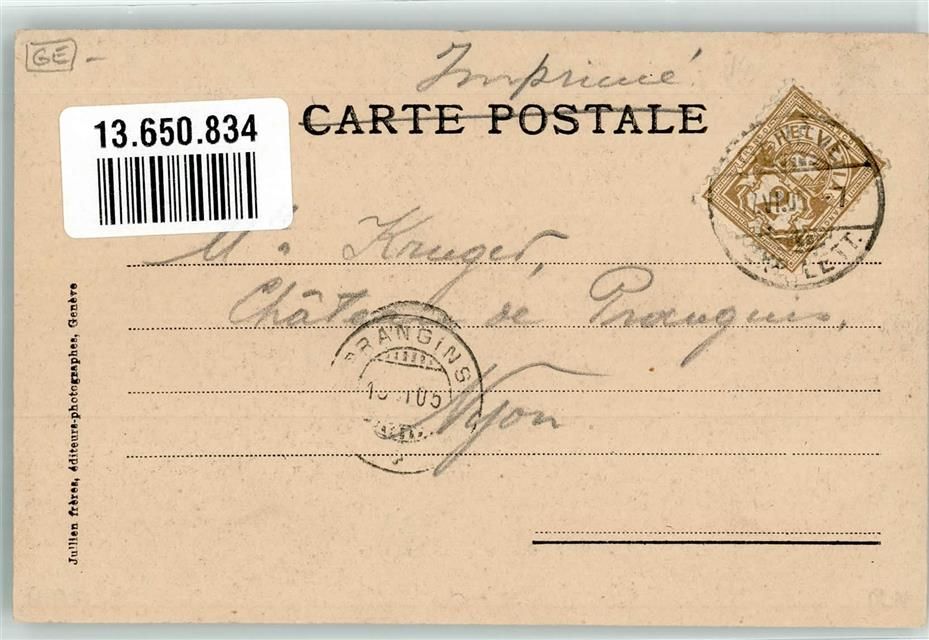 GE -
Imprimé
CARTE POSTALE
13.650.834
HELVE
EXP. LETT.
M. Kruger,
Château de Prangins,
PRANGINS
05
Nyon
Jullien frères, éditeurs-photographes, Genève